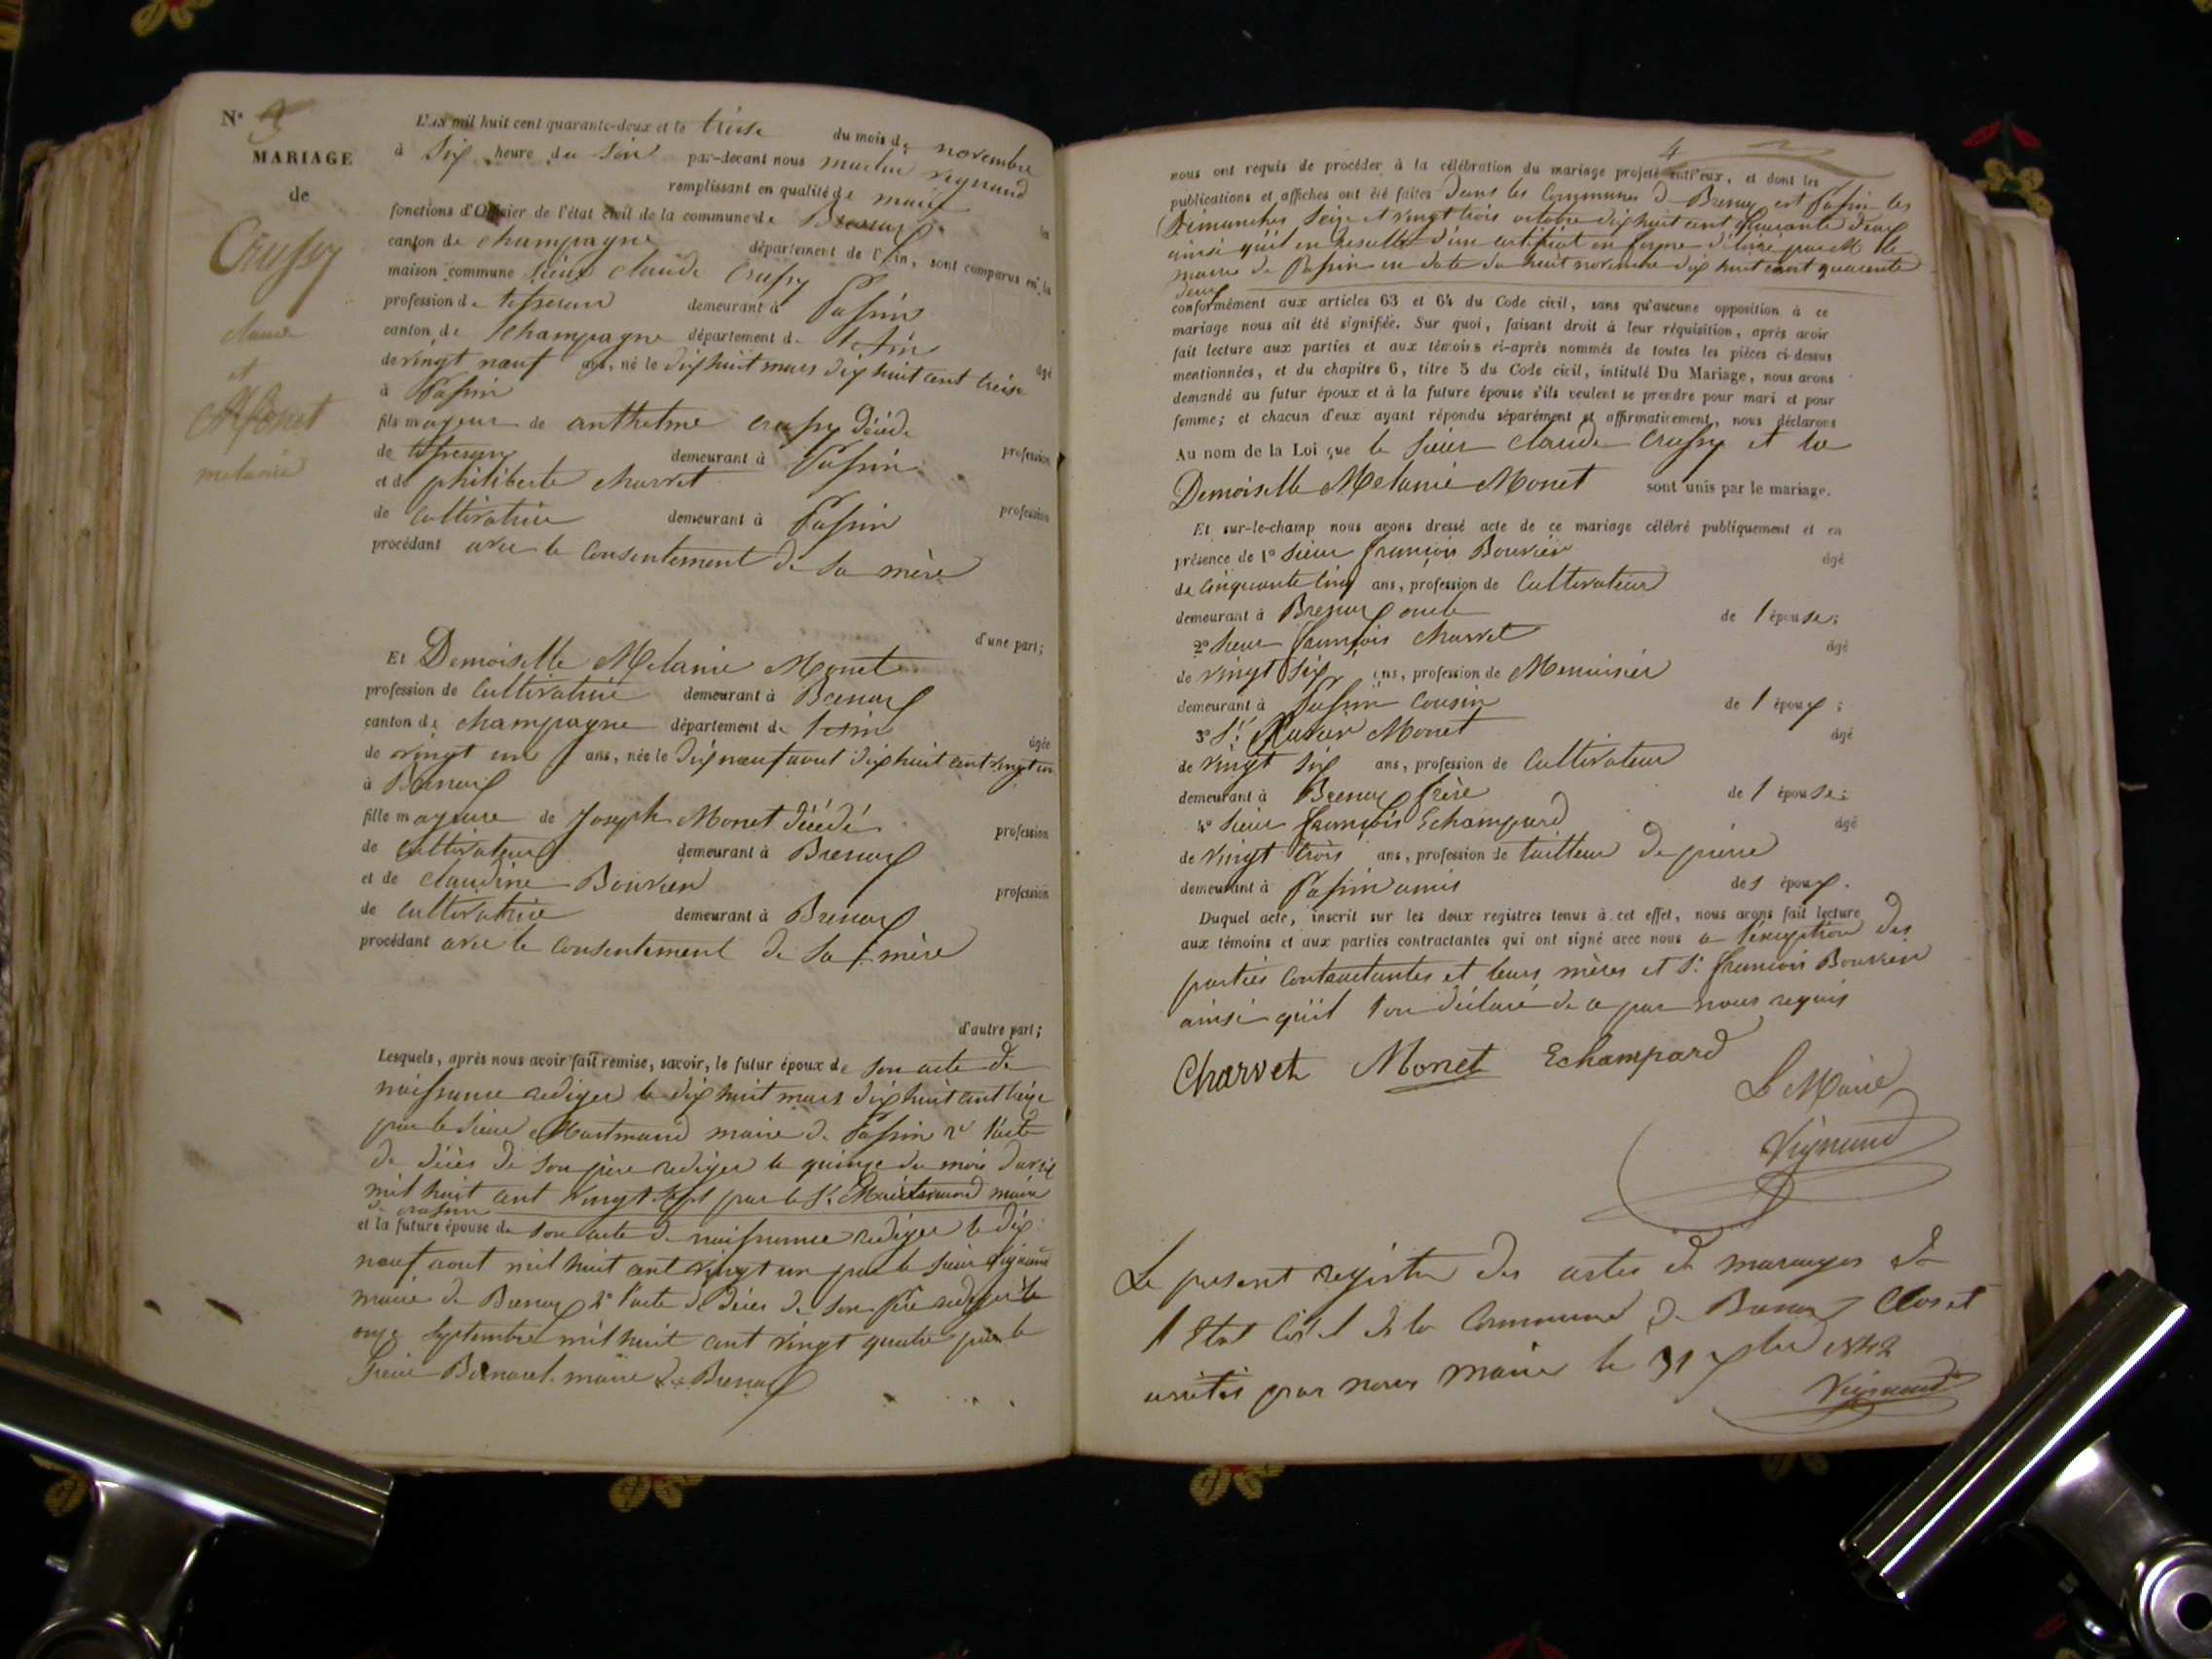 N° 3
MARIAGE
de
Crussy
claude
et
Monet
melanie
L'an mil huit cent quarante-deux et le treise du mois de novembre
à Six heure du Soir par-devant nous martin vignand
remplissant en qualité de maire
fonctions d'Officier de l'état civil de la commune de Brenaz les
canton de champagne département de l'Ain, sont comparus en la
maison commune Sieur claude Crussy
profession de tisserand demeurant à Passin
canton de Champagne département de l'ain
âgé
de vingt neuf ans, né le dix huit mars dix huit cent treise
à Passin
fils majeur de anthelme crussy décédé
profession
de tisserand demeurant à Passin
et de philiberte charvet
profession
de cultivatrice demeurant à Passin
procédant avec le consentement de sa mère
d'une part;
Et Demoiselle Melanie Monet
profession de Cultivatrice demeurant à Brenaz
canton de champagne département de l'ain
âgée
de vingt un ans, née le dix neuf aout dix huit cent vingt un
à Brenaz
fille majeure de Joseph Monet décédé
profession
de cultivateur demeurant à Brenaz
et de claudine Bouvier
profession
de cultivatrice demeurant à Brenaz
procédant avec le consentement de sa mère
d'autre part;
Lesquels, après nous avoir fait remise, savoir, le futur époux de son acte de
naissance rediger le dix huit mars dix huit cent treize
par le Sieur maire de Passin 2° l'acte
de décès de son père rediger le quinze du mois davril
mil huit cent vingt sept par le Sr. maire
de passin
et la future épouse de son acte de naissance rediger le dix
neuf aout mil huit cent vingt un par le sieur vignand
maire de Brenaz 2° l'acte de décès de son père rediger le
onze septembre mil huit cent vingt quatre par le
Sieur maire de Brenaz
4
nous ont requis de procéder à la célébration du mariage projeté entr'eux, et dont les
publications et affiches ont été faites dans les Communes de Brenaz est Passin les
Dimanches Seize et vingt trois octobre dix huit cent quarante deux
ainsi qu'il en résulte d'un certificat en forme délivré par Mr le
maire de Passin en date du huit novembre dix huit cent quarante
deux
conformément aux articles 63 et 64 du Code civil, sans qu'aucune opposition à ce
mariage nous ait été signifiée. Sur quoi, faisant droit à leur réquisition, après avoir
fait lecture aux parties et aux témoins ci-après nommés de toutes les pièces ci-dessus
mentionnées, et du chapitre 6, titre 5 du Code civil, intitulé Du Mariage, nous avons
demandé au futur époux et à la future épouse s'ils veulent se prendre pour mari et pour
femme; et chacun d'eux ayant répondu séparément et affirmativement, nous déclarons
Au nom de la Loi que le Sieur claude Crussy et la
Demoiselle Melanie Monet sont unis par le mariage.
Et sur-le-champ nous avons dressé acte de ce mariage célébré publiquement et en
présence de 1° Sieur françois Bouvier âgé
de cinquante cinq ans, profession de Cultivateur
demeurant à Brenaz oncle de l'épouse;
2° Sieur françois charvet âgé
de vingt six ans, profession de Menuisier
demeurant à Passin Cousin de l'époux;
3° Sr. Monet âgé
de vingt six ans, profession de Cultivateur
demeurant à Brenaz frère de l'épouse;
4° Sieur françois Echampard âgé
de vingt trois ans, profession de tailleur de pierre
demeurant à Passin amis de l'époux.
Duquel acte, inscrit sur les deux registres tenus à cet effet, nous avons fait lecture
aux témoins et aux parties contractantes qui ont signé avec nous a l'exception des
parties contractantes et leurs mères et Sr. francois Bouvier
ainsi qu'il l'on déclaré de ce par nous requis
Charvet Monet Echampard
Le Maire
Vignand
Le present registre des actes de mariages de
l'Etat Civil de la Commune de Brenaz Clos et
arrêtés par nous Maire le 31 xbre 1842
Vignand